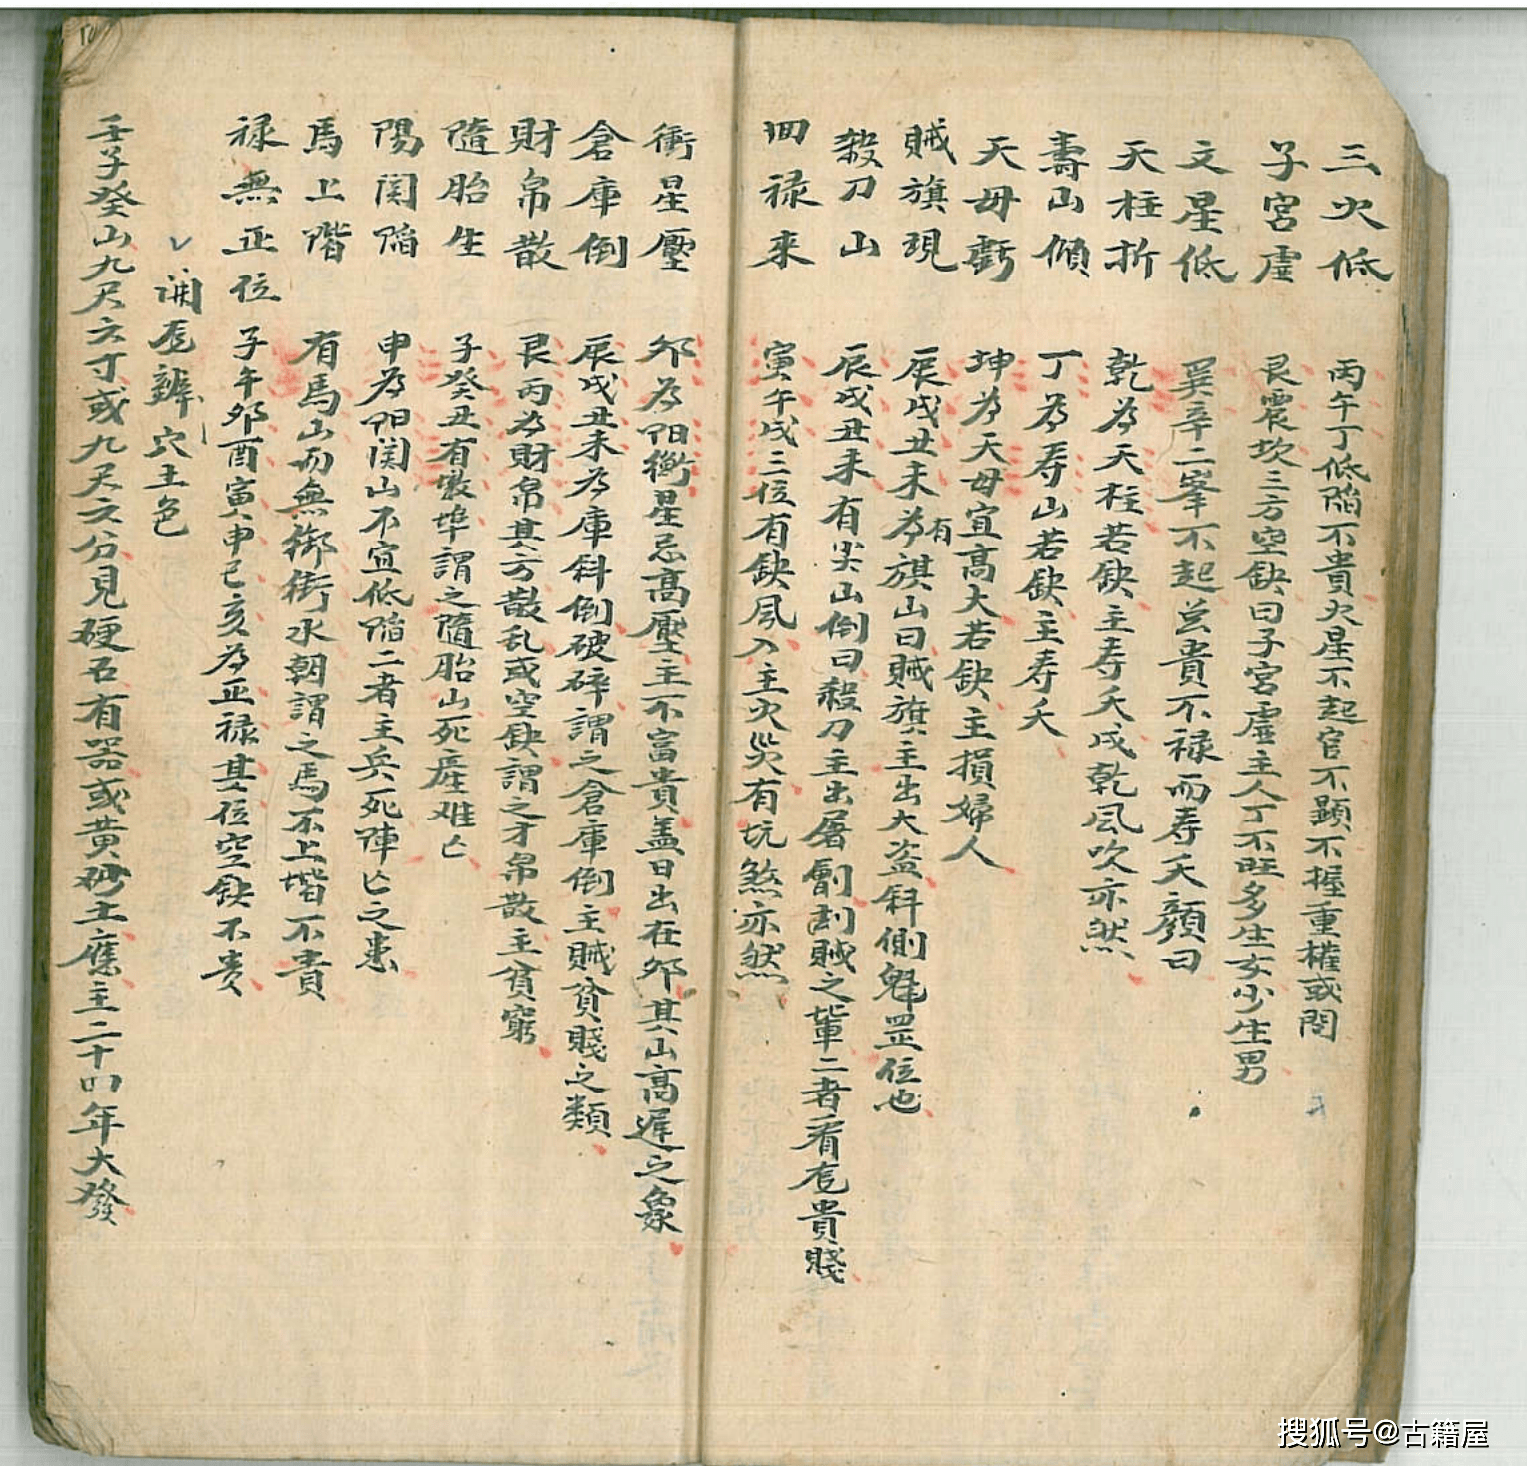 三火低　丙午丁低陷不貴火星不起官不顯不握重權或閃
子宮虛　艮震坎三方空缺曰子宮虛主人丁不旺多生女少生男
文星低　巽辛二峯不起並貴不禄而寿夭顏曰
天柱折　乾為天柱若缺主寿夭戌乾風吹亦然
壽山傾　丁為寿山若缺主寿夭
天母虧　坤為天母宜高大若缺主損婦人
賊旗現　辰戌丑未為有旗山曰賊旗主出大盗斜側魁罡位也
殺刀山　辰戌丑未有尖山倒曰殺刀主出屠劊割賊之輩二者看龙貴賤
回禄来　寅午戌三位有缺風入主火災有坑煞亦然
衝星壓　夘為阳衝星忌高壓主不富貴盖日出在夘其山高遲之象
倉庫倒　辰戌丑未為庫斜倒破碎謂之倉庫倒主賊貧賤之類
財帛散　艮丙為財帛其方散乱或空缺謂之才帛散主貧窮
隨胎生　子癸丑有墩埠謂之隨胎山死產难亡
陽関陷　申為阳関山不宜低陷二者主兵死陣亡之患
馬上階　有馬山而無御街水朝謂之馬不上堦不貴
禄無正位　子午夘酉寅申巳亥為正禄其位空缺不貴
開龙辨穴土色
壬子癸山九尺六寸或九尺六分見硬石有器或黄砂土應主二十四年大發
搜狐号@古籍屋